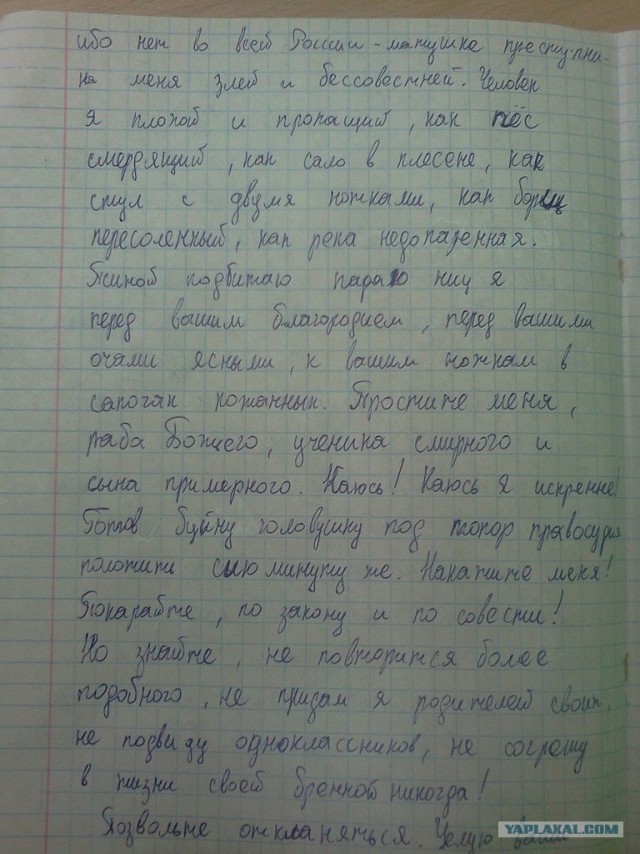 ибо нет во всей России-матушке преступни-
ка меня злей и бессовестней. Человек
я плохой и пропащий, как пёс
смердящий, как сало в плесене, как
стул с двумя ножками, как борщ
пересоленный, как репа недопаренная.
Псиной подбитаю падаю ниц я
перед вашим благородием, перед вашими
очами ясными, к вашим ножкам в
сапогах кожанных. Простите меня,
раба Божьего, ученика смирного и
сына примерного. Каюсь! Каюсь я искренне!
Готов буйну головушку под топор правосудия
положить сию минуту же. Накажите меня!
Покарайте, по закону и по совести!
Но знайте, не повторится более
подобного, не придам я родителей своих,
не подведу одноклассников, не согрешу
в жизни своей бренной никогда!
Позвольте откланяться. Целую ваши
YAPLAKAL.COM